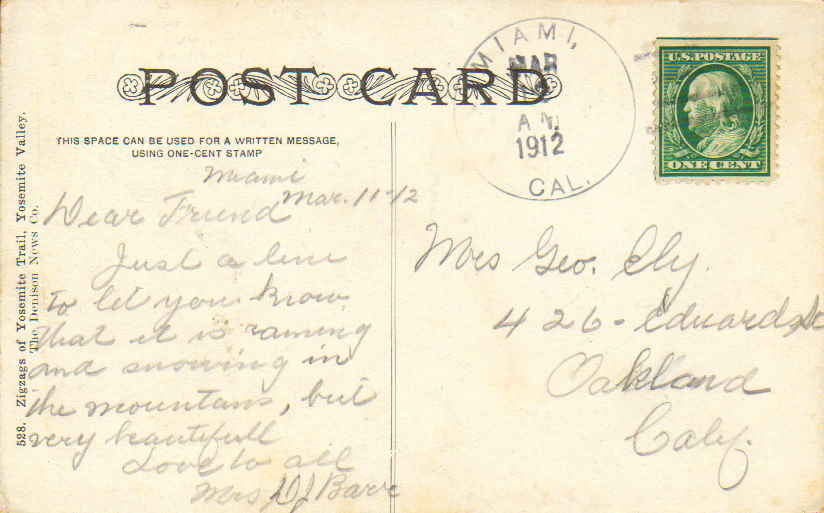 POST CARD
THIS SPACE CAN BE USED FOR A WRITTEN MESSAGE,
USING ONE-CENT STAMP
528. Zigzags of Yosemite Trail, Yosemite Valley.
The Denison News Co.
MIAMI,
MAR
A M
1912
CAL.
U.S. POSTAGE
ONE CENT
Miami
Mar. 11-12
Dear Friend
Just a line
to let you know
that it is raining
and snowing in
the mountans, but
very beautifull
Love to all
Mrs D J Barr
Mrs Geo. Ely.
426- Eduards
Oakland
Caly.